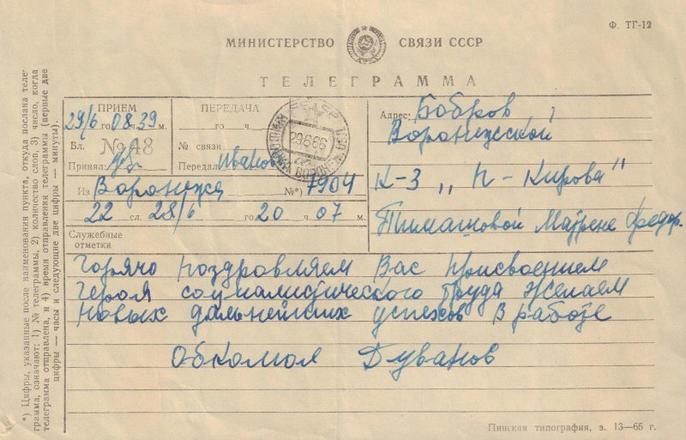 Ф. ТГ-12
МИНИСТЕРСТВО СВЯЗИ СССР
ТЕЛЕГРАММА
ПРИЕМ
29/6 го 08 ч. 39 м.
Бл. № 48
Принял:
ПЕРЕДАЧА
го ч. м.
№ связи
Передал: Иванов
29666
Адрес: Бобров,
Воронижской
К-З „П-Кирова“
Тимашковой Матрене Федор.
Из Воронижа №*) 7904
22 сл. 28/6 го 20 ч. 07 м.
Служебные
отметки
Горячо поздравляем Вас присвоением
Героя социалистического труда Желаем
новых дальнейших успехов в работе
Обкомол Дуванов
*) Цифры, указанные после наименования пункта, откуда послана теле-
грамма, означают: 1) № телеграммы, 2) количество слов, 3) число, когда
телеграмма отправлена, и 4) время отправления телеграммы (первые две
цифры — часы и следующие две цифры — минуты).
Пинская типография, з. 13—65 г.